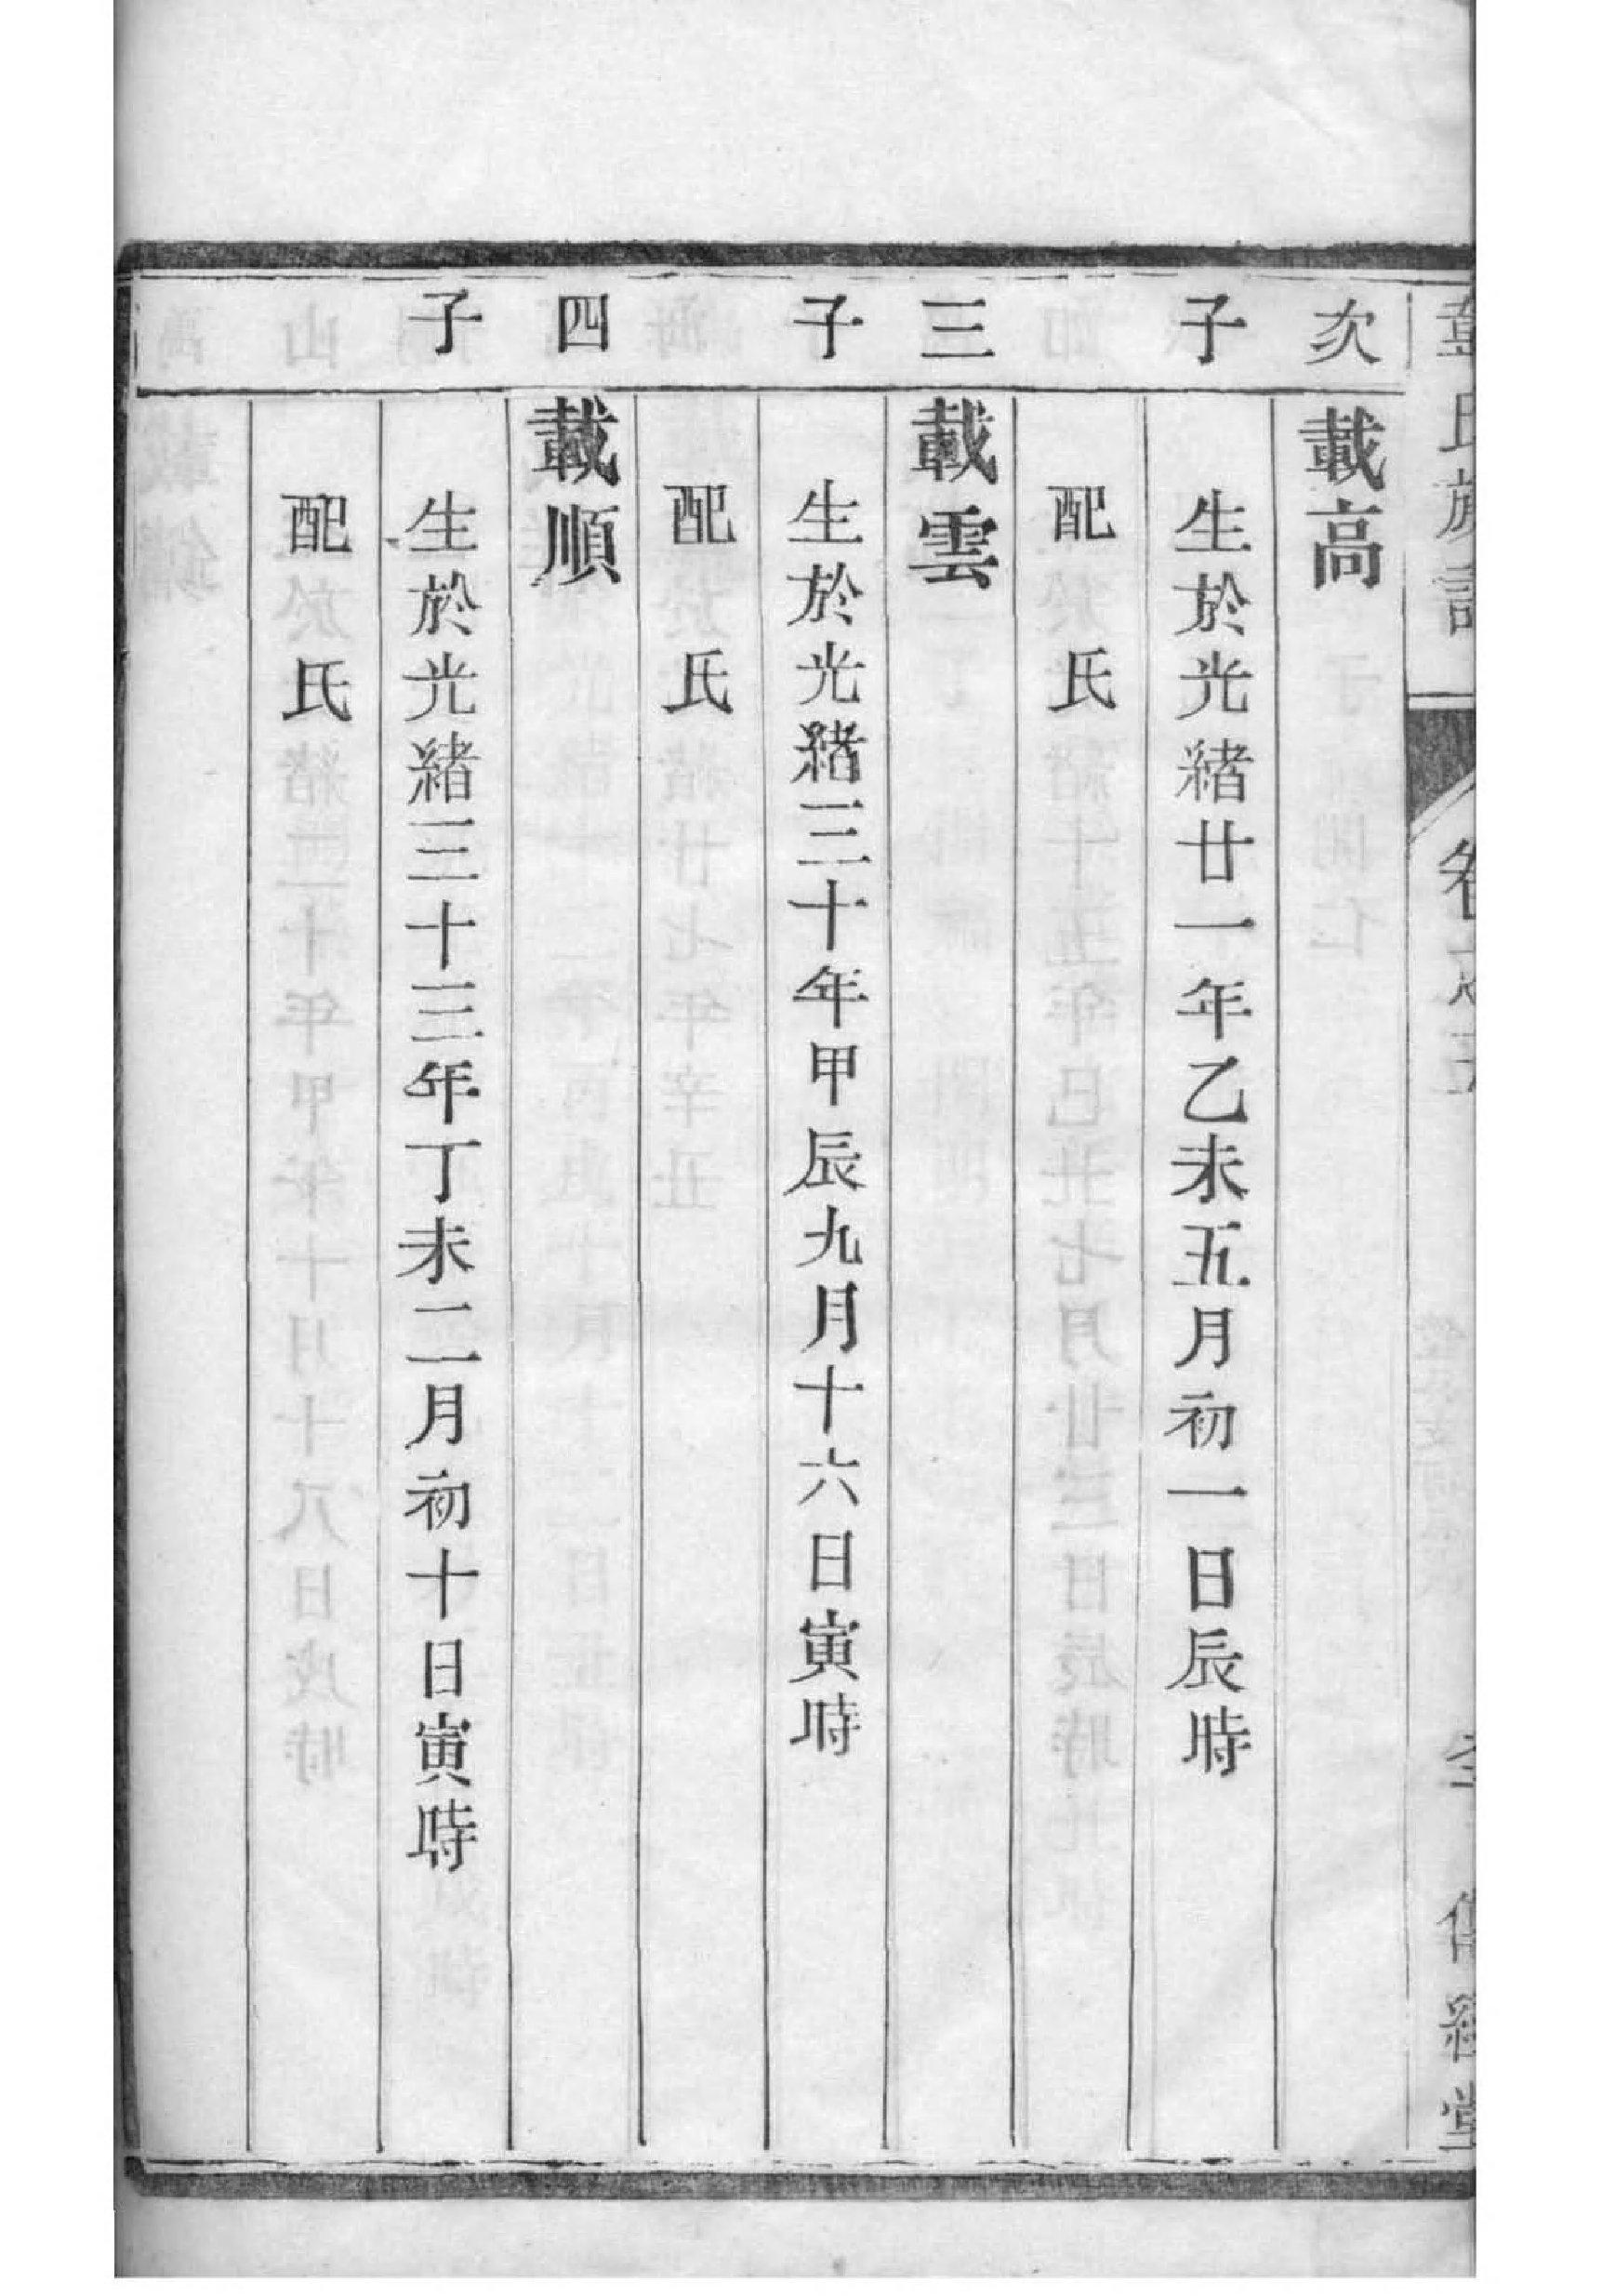 次 載高
子 生於光緒廿一年乙未五月初一日辰時
配 氏
三 載雲
子 生於光緒三十年甲辰九月十六日寅時
配 氏
四 載順
子 生於光緒三十三年丁未二月初十日寅時
配 氏